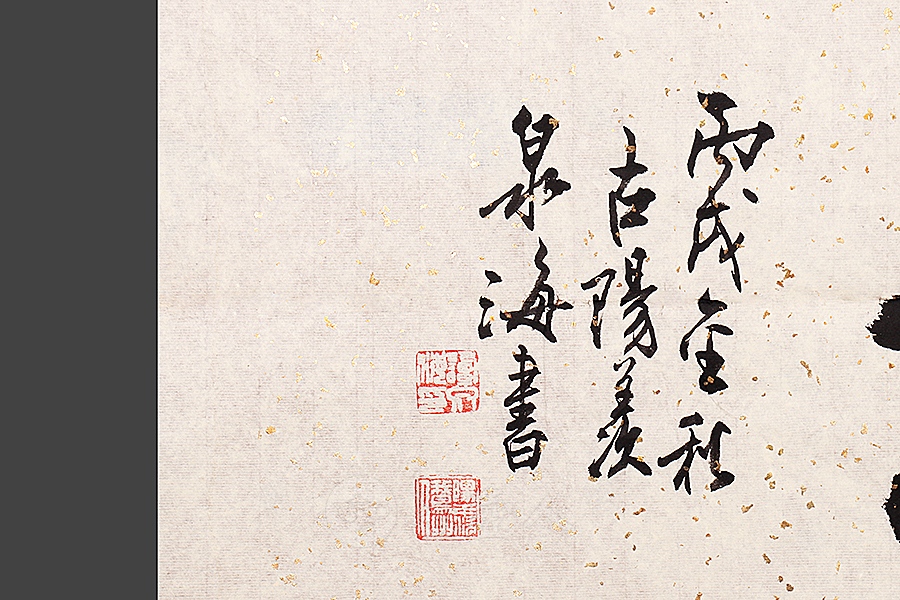 丙戌金秋
古陽羨
泉海書